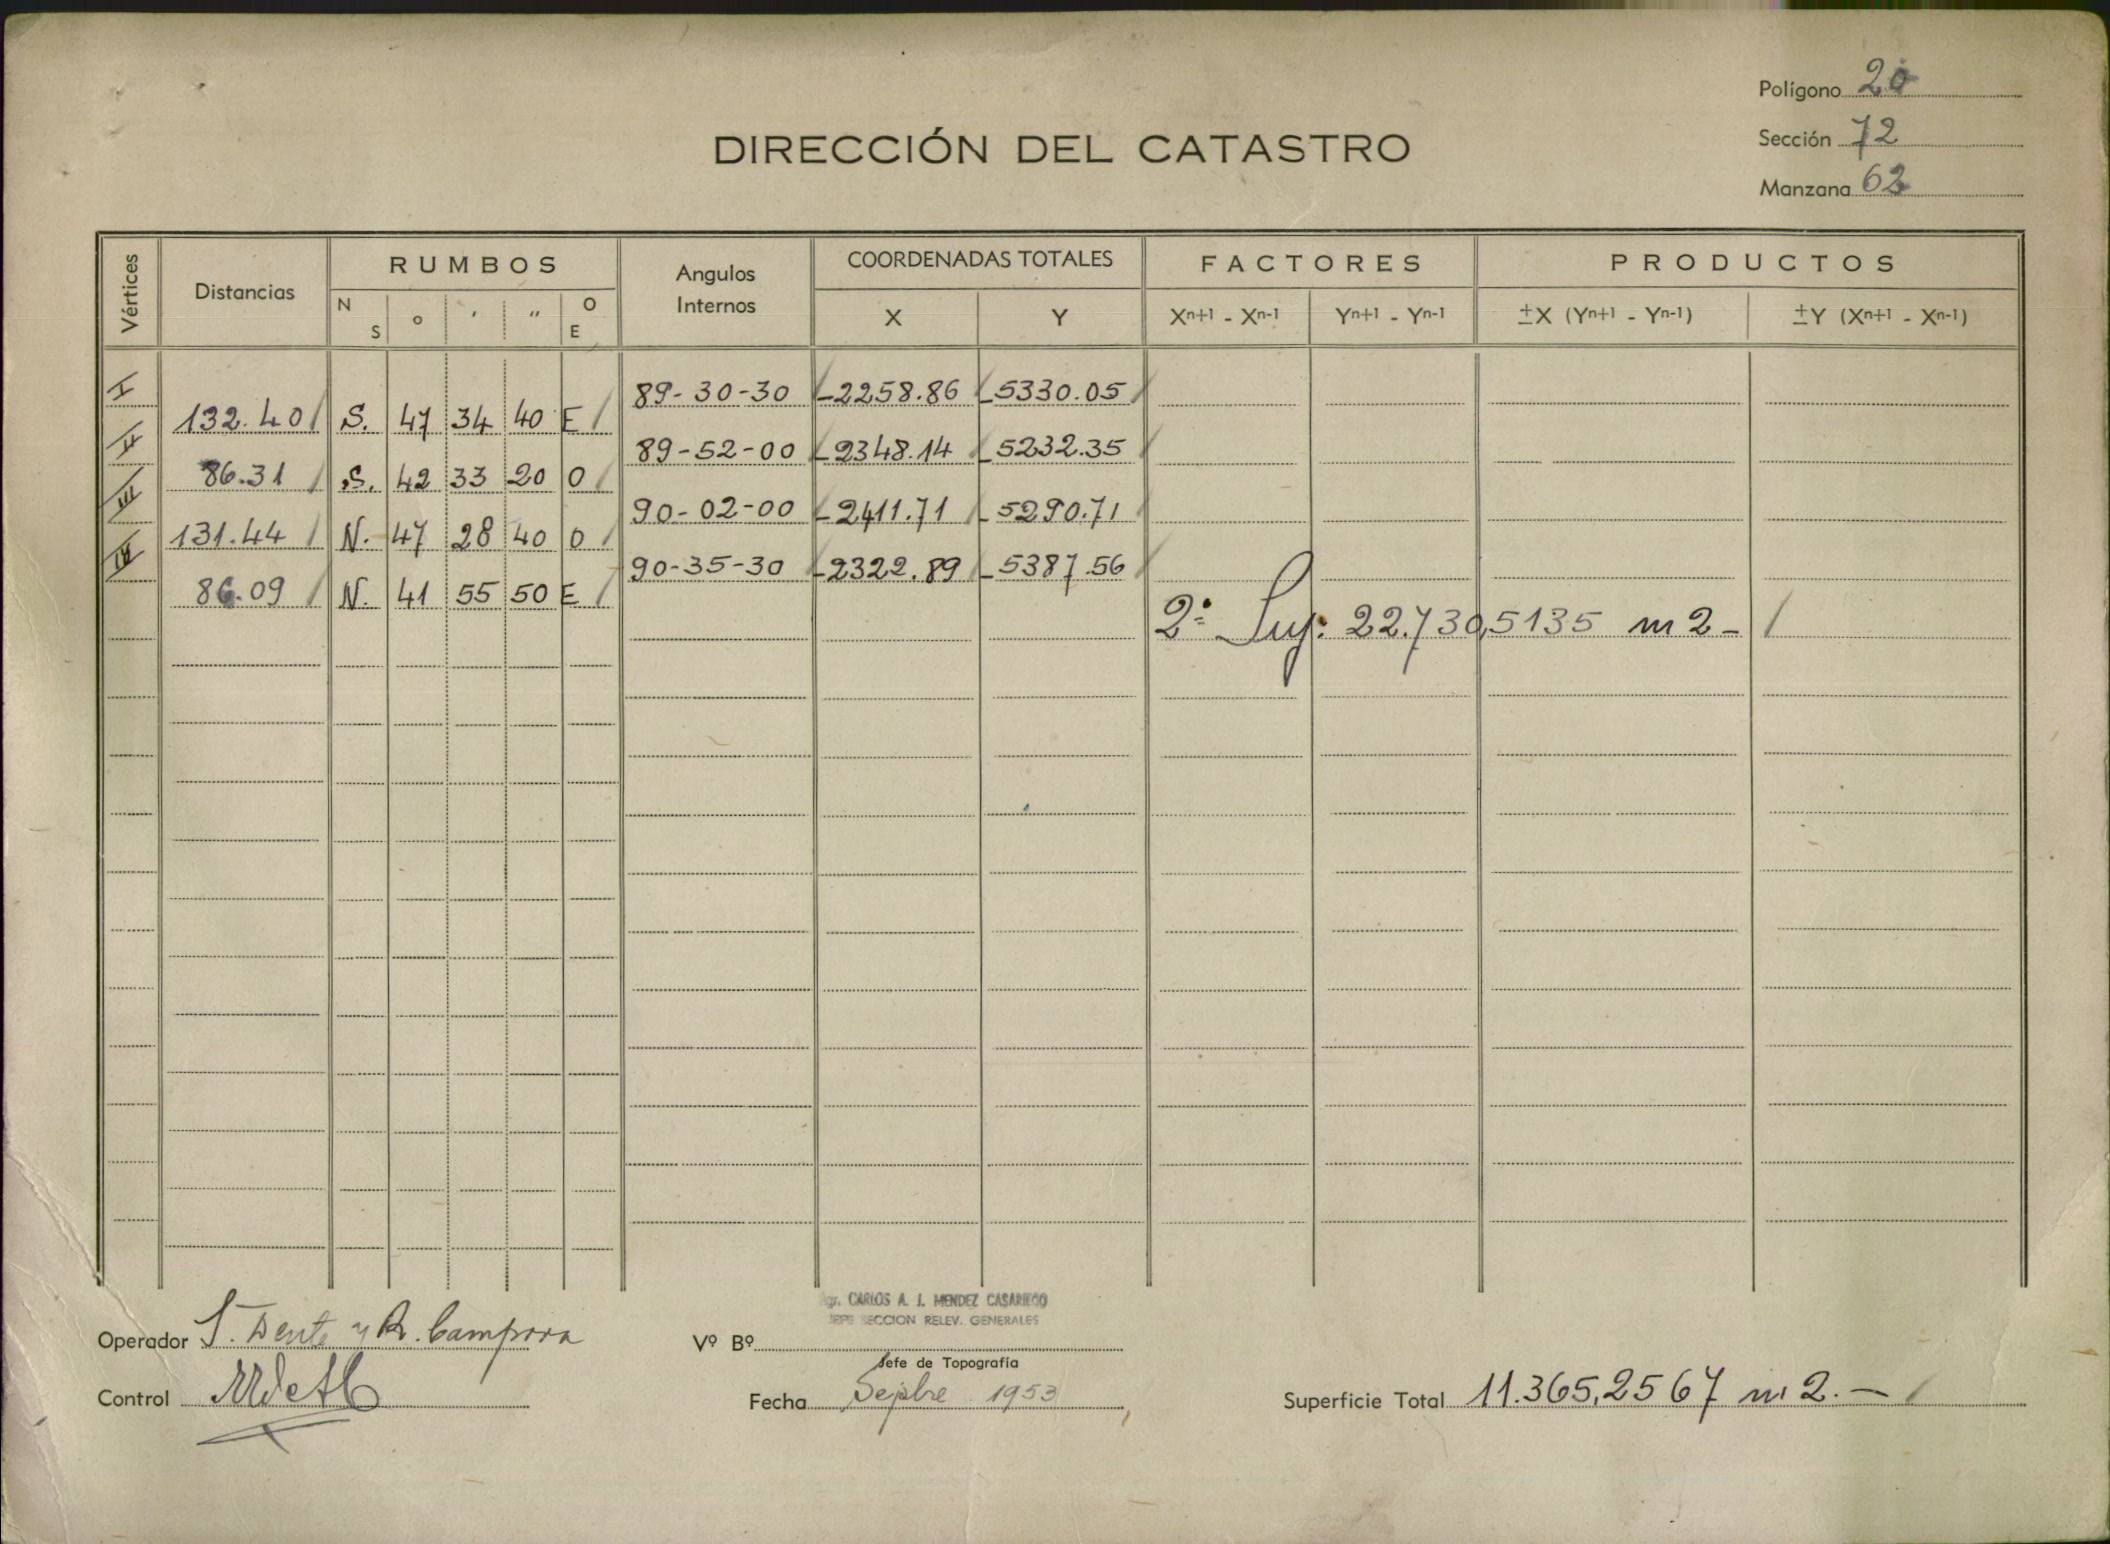 Polígono 20
DIRECCIÓN DEL CATASTRO
Sección 72
Manzana 62
Vértices
Distancias
RUMBOS
N S ° ′ ″ O E
Angulos Internos
COORDENADAS TOTALES
X Y
FACTORES
Xn+1 - Xn-1 Yn+1 - Yn-1
PRODUCTOS
±X (Yn+1 - Yn-1) ±Y (Xn+1 - Xn-1)
I 89-30-30 -2258.86 -5330.05
132.40 S. 47 34 40 E
II 89-52-00 -2348.14 -5232.35
86.31 S. 42 33 20 O
III 90-02-00 -2411.71 -5290.71
131.44 N. 47 28 40 O
IV 90-35-30 -2322.89 -5387.56
86.09 N. 41 55 50 E
2: Sup: 22.730,5135 m2-
CARLOS A. J. MENDEZ CASARIEGO
JEFE SECCION RELEV. GENERALES
Operador S. Dente y R. Campora
Vº Bº
Jefe de Topografía
Control
Fecha Sepbre 1953
Superficie Total 11.365,2567 m2.-